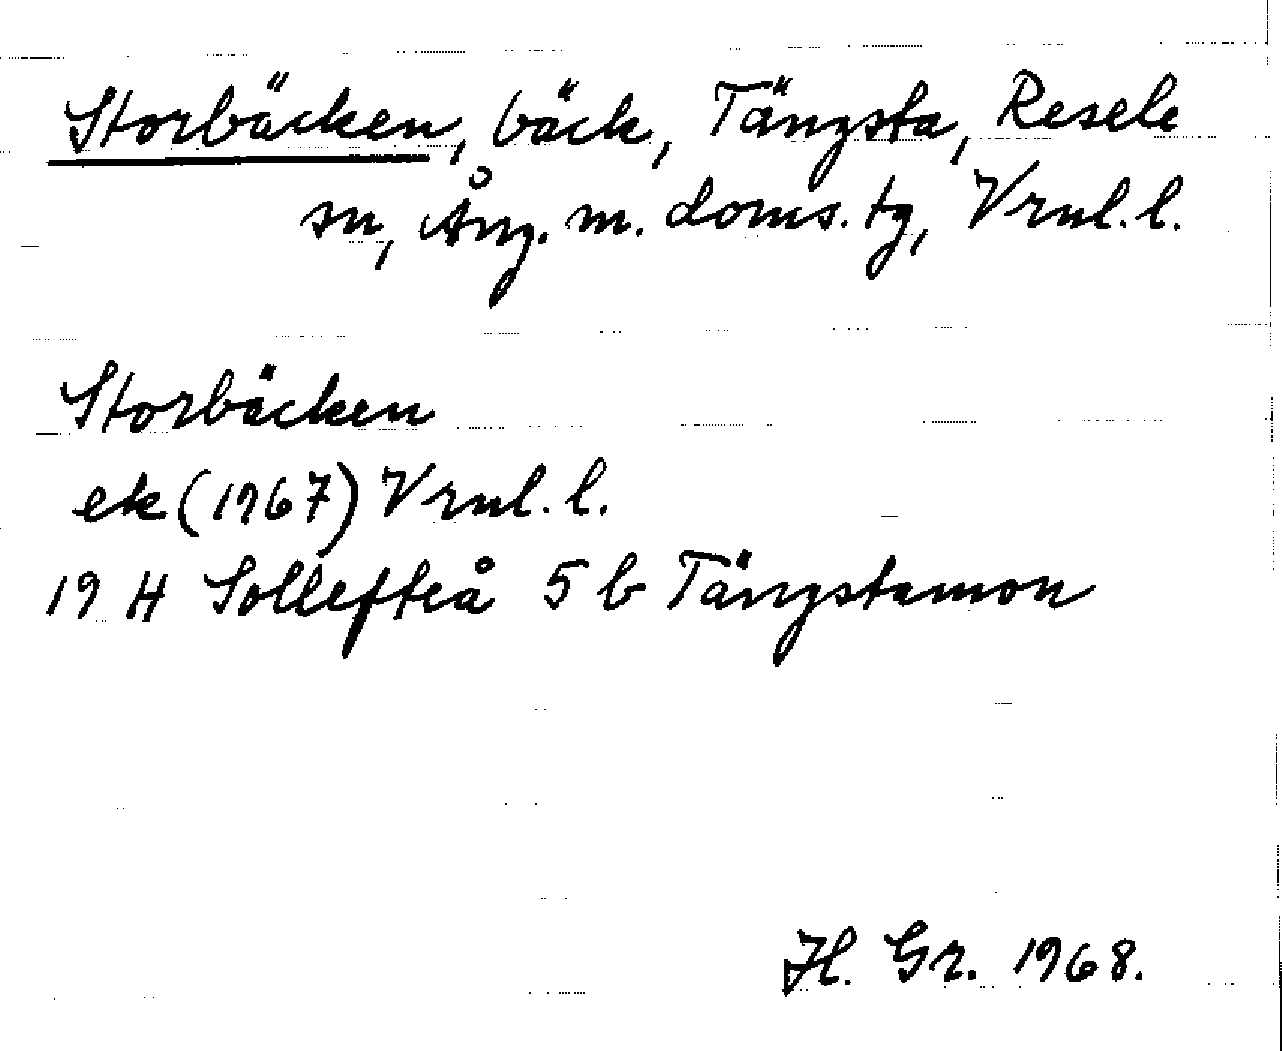 Storbäcken, bäck, Tängsta, Resele
sn, Ång. m. doms. tg, Vrnl. l.
Storbäcken
ek (1967) Vrnl. l.
19 H Sollefteå 5 b Tängstamon
H. Gr. 1968.